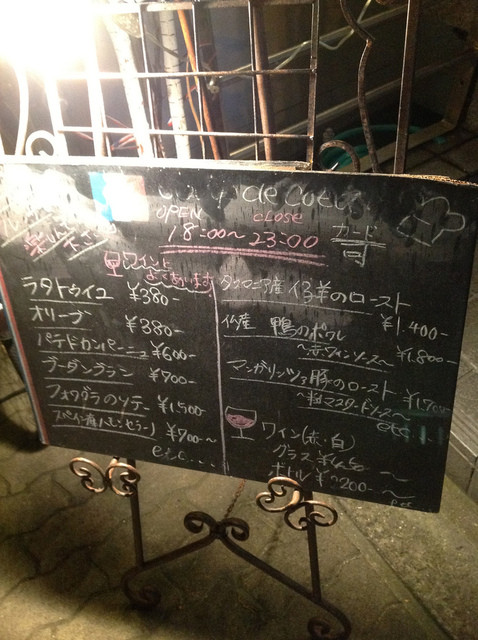 de Coeur
OPEN CLOSE
18:00～23:00
カード可
ワインに
よくあいます
ラタトゥイユ ¥380-
オリーブ ¥380-
パテドカンパーニュ ¥600-
ブーダンブラン ¥700-
フォワグラのソテー ¥1,500-
¥700-～
etc....
産仔羊のロースト
¥1,400-
仏産 鴨のポワレ
～赤ワインソース～ ¥1,800-
マンガリッツァ豚のロースト
～粒マスタードソース～ ¥1,700-
etc
ワイン(赤・白)
グラス
ボトル